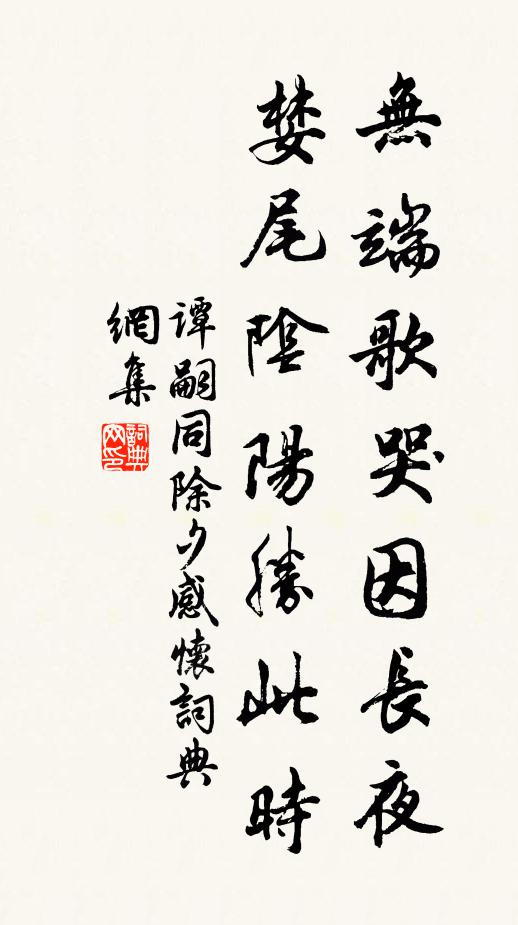 無端歌哭因長夜
婪尾陰陽勝此時
譚嗣同除夕感懷詞典
網集
詞典網印